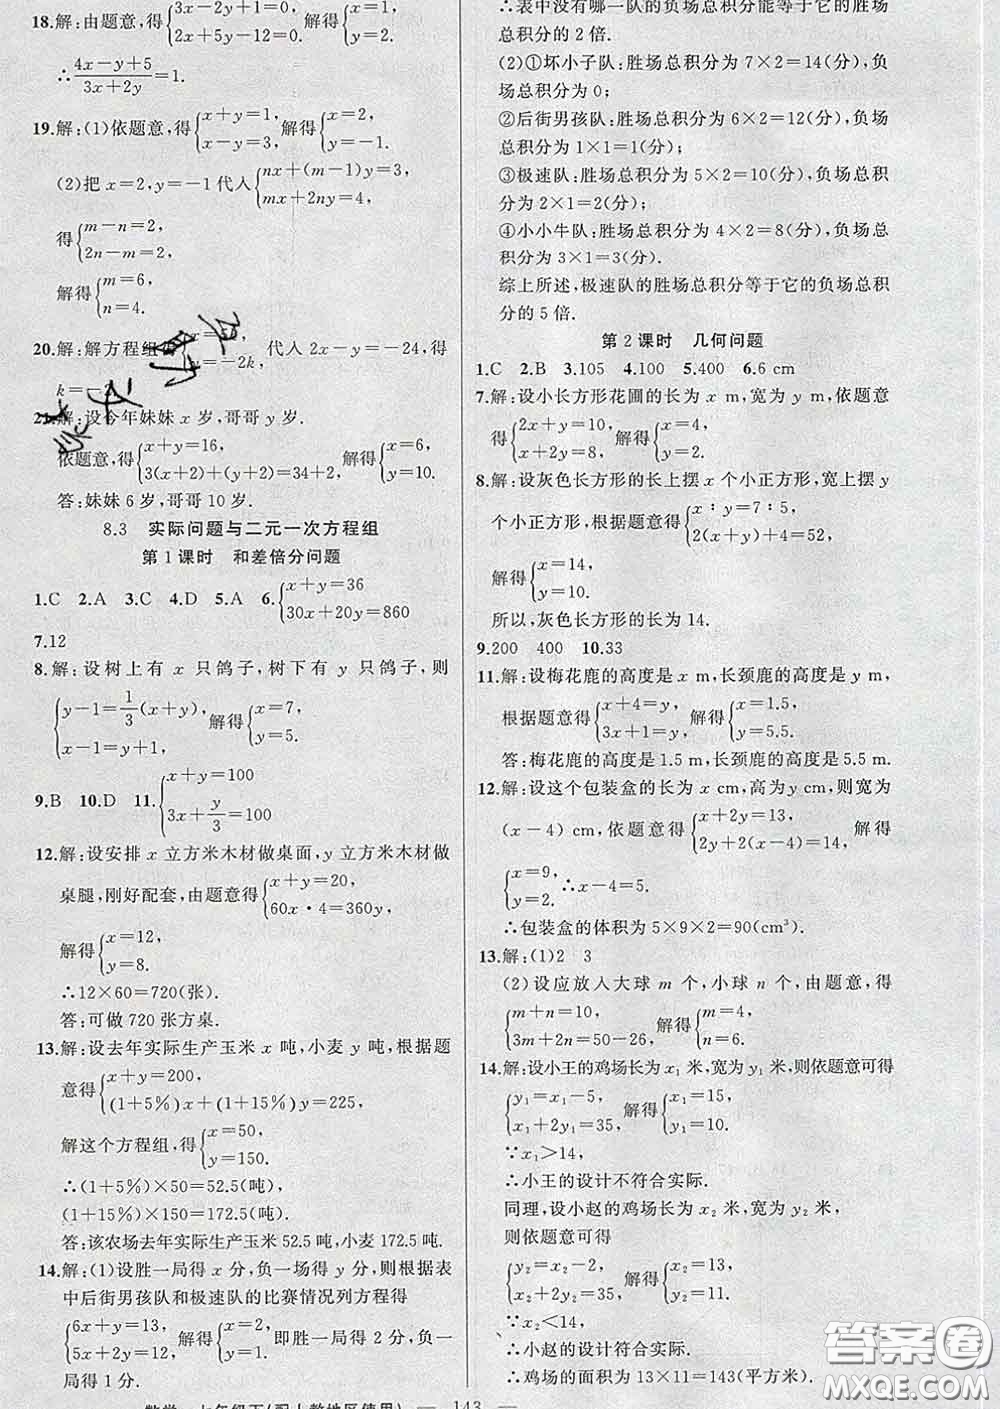 18.解:由题意,得{3x−2y+1=0, 2x+5y−12=0. 解得{x=1, y=2.
∴(4x−y+5)/(3x+2y)=1.
19.解:(1)依题意,得{x+y=1, x−y=3, 解得{x=2, y=−1.
(2)把 x=2,y=−1代入{nx+(m−1)y=3, mx+2ny=4,
得{m−n=2, 2n−m=2,
解得{m=6, n=4.
20.解:解方程组 y=−2k, 代入 2x−y=−24,得
21.解:设今年妹妹 x 岁,哥哥 y 岁.
依题意,得{x+y=16, 3(x+2)+(y+2)=34+2, 解得{x=6, y=10.
答:妹妹 6 岁,哥哥 10 岁.
8.3 实际问题与二元一次方程组
第 1 课时 和差倍分问题
1.C 2.A 3.C 4.D 5.A 6.{x+y=36 30x+20y=860
7.12
8.解:设树上有 x 只鸽子,树下有 y 只鸽子,则
{y−1=1/3(x+y), x−1=y+1, 解得{x=7, y=5.
9.B 10.D 11.{x+y=100 3x+y/3=100
12.解:设安排 x 立方米木材做桌面,y 立方米木材做
桌腿,刚好配套,由题意得{x+y=20, 60x·4=360y,
解得{x=12, y=8.
∴12×60=720(张).
答:可做 720 张方桌.
13.解:设去年实际生产玉米 x 吨,小麦 y 吨,根据题
意得{x+y=200, (1+5%)x+(1+15%)y=225,
解这个方程组,得{x=50, y=150.
∴(1+5%)×50=52.5(吨),
(1+15%)×150=172.5(吨).
答:该农场去年实际生产玉米 52.5 吨,小麦 172.5 吨.
14.解:(1)设胜一局得 x 分,负一场得 y 分,则根据表
中后街男孩队和极速队的比赛情况列方程得
{6x+y=13, 5x+2y=12, 解得{x=2, y=1. 即胜一局得 2 分,负一
局得 1 分.
∴表中没有哪一队的负场总积分能等于它的胜场
总积分的 2 倍.
(2)①坏小子队:胜场总积分为 7×2=14(分),负
场总积分为 0;
②后街男孩队:胜场总积分为 6×2=12(分),负场
总积分为 1×1=1(分);
③极速队:胜场总积分为 5×2=10(分),负场总积
分为 2×1=2(分);
④小小牛队:胜场总积分为 4×2=8(分),负场总
积分为 3×1=3(分).
综上所述,极速队的胜场总积分等于它的负场总积
分的 5 倍.
第 2 课时 几何问题
1.C 2.B 3.105 4.100 5.400 6.6 cm
7.解:设小长方形花圃的长为 x m,宽为 y m,依题意
得{2x+y=10, x+2y=8, 解得{x=4, y=2.
8.解:设灰色长方形的长上摆 x 个小正方形,宽上摆 y
个小正方形,根据题意得{x∶y=7∶5, 2(x+y)+4=52,
解得{x=14, y=10.
所以,灰色长方形的长为 14.
9.200 400 10.33
11.解:设梅花鹿的高度是 x m,长颈鹿的高度是 y m,
根据题意得{x+4=y, 3x+1=y, 解得{x=1.5, y=5.5.
答:梅花鹿的高度是 1.5 m,长颈鹿的高度是 5.5 m.
12.解:设这个包装盒的长为 x cm,高为 y cm,则宽为
(x−4) cm,依题意得{x+2y=13, 2y+2(x−4)=14, 解得
{x=9, y=2. ∴x−4=5.
∴包装盒的体积为 5×9×2=90(cm³).
13.解:(1)2 3
(2)设应放入大球 m 个,小球 n 个,由题意,得
{m+n=10, 3m+2n=50−26, 解得{m=4, n=6.
14.解:设小王的鸡场长为 x₁ 米,宽为 y₁ 米,则依题意可得
{y₁=x₁−5, x₁+2y₁=35, 解得{x₁=15, y₁=10.
∵x₁>14,
∴小王的设计不符合实际.
同理,设小赵的鸡场长为 x₂ 米,宽为 y₂ 米,
则依题意可得
{y₂=x₂−2, x₂+2y₂=35, 解得{x₂=13, y₂=11.
∵x₂<14,
∴小赵的设计符合实际.
∴鸡场的面积为 13×11=143(平方米).
— 143 —
答案圈
MXQE.COM